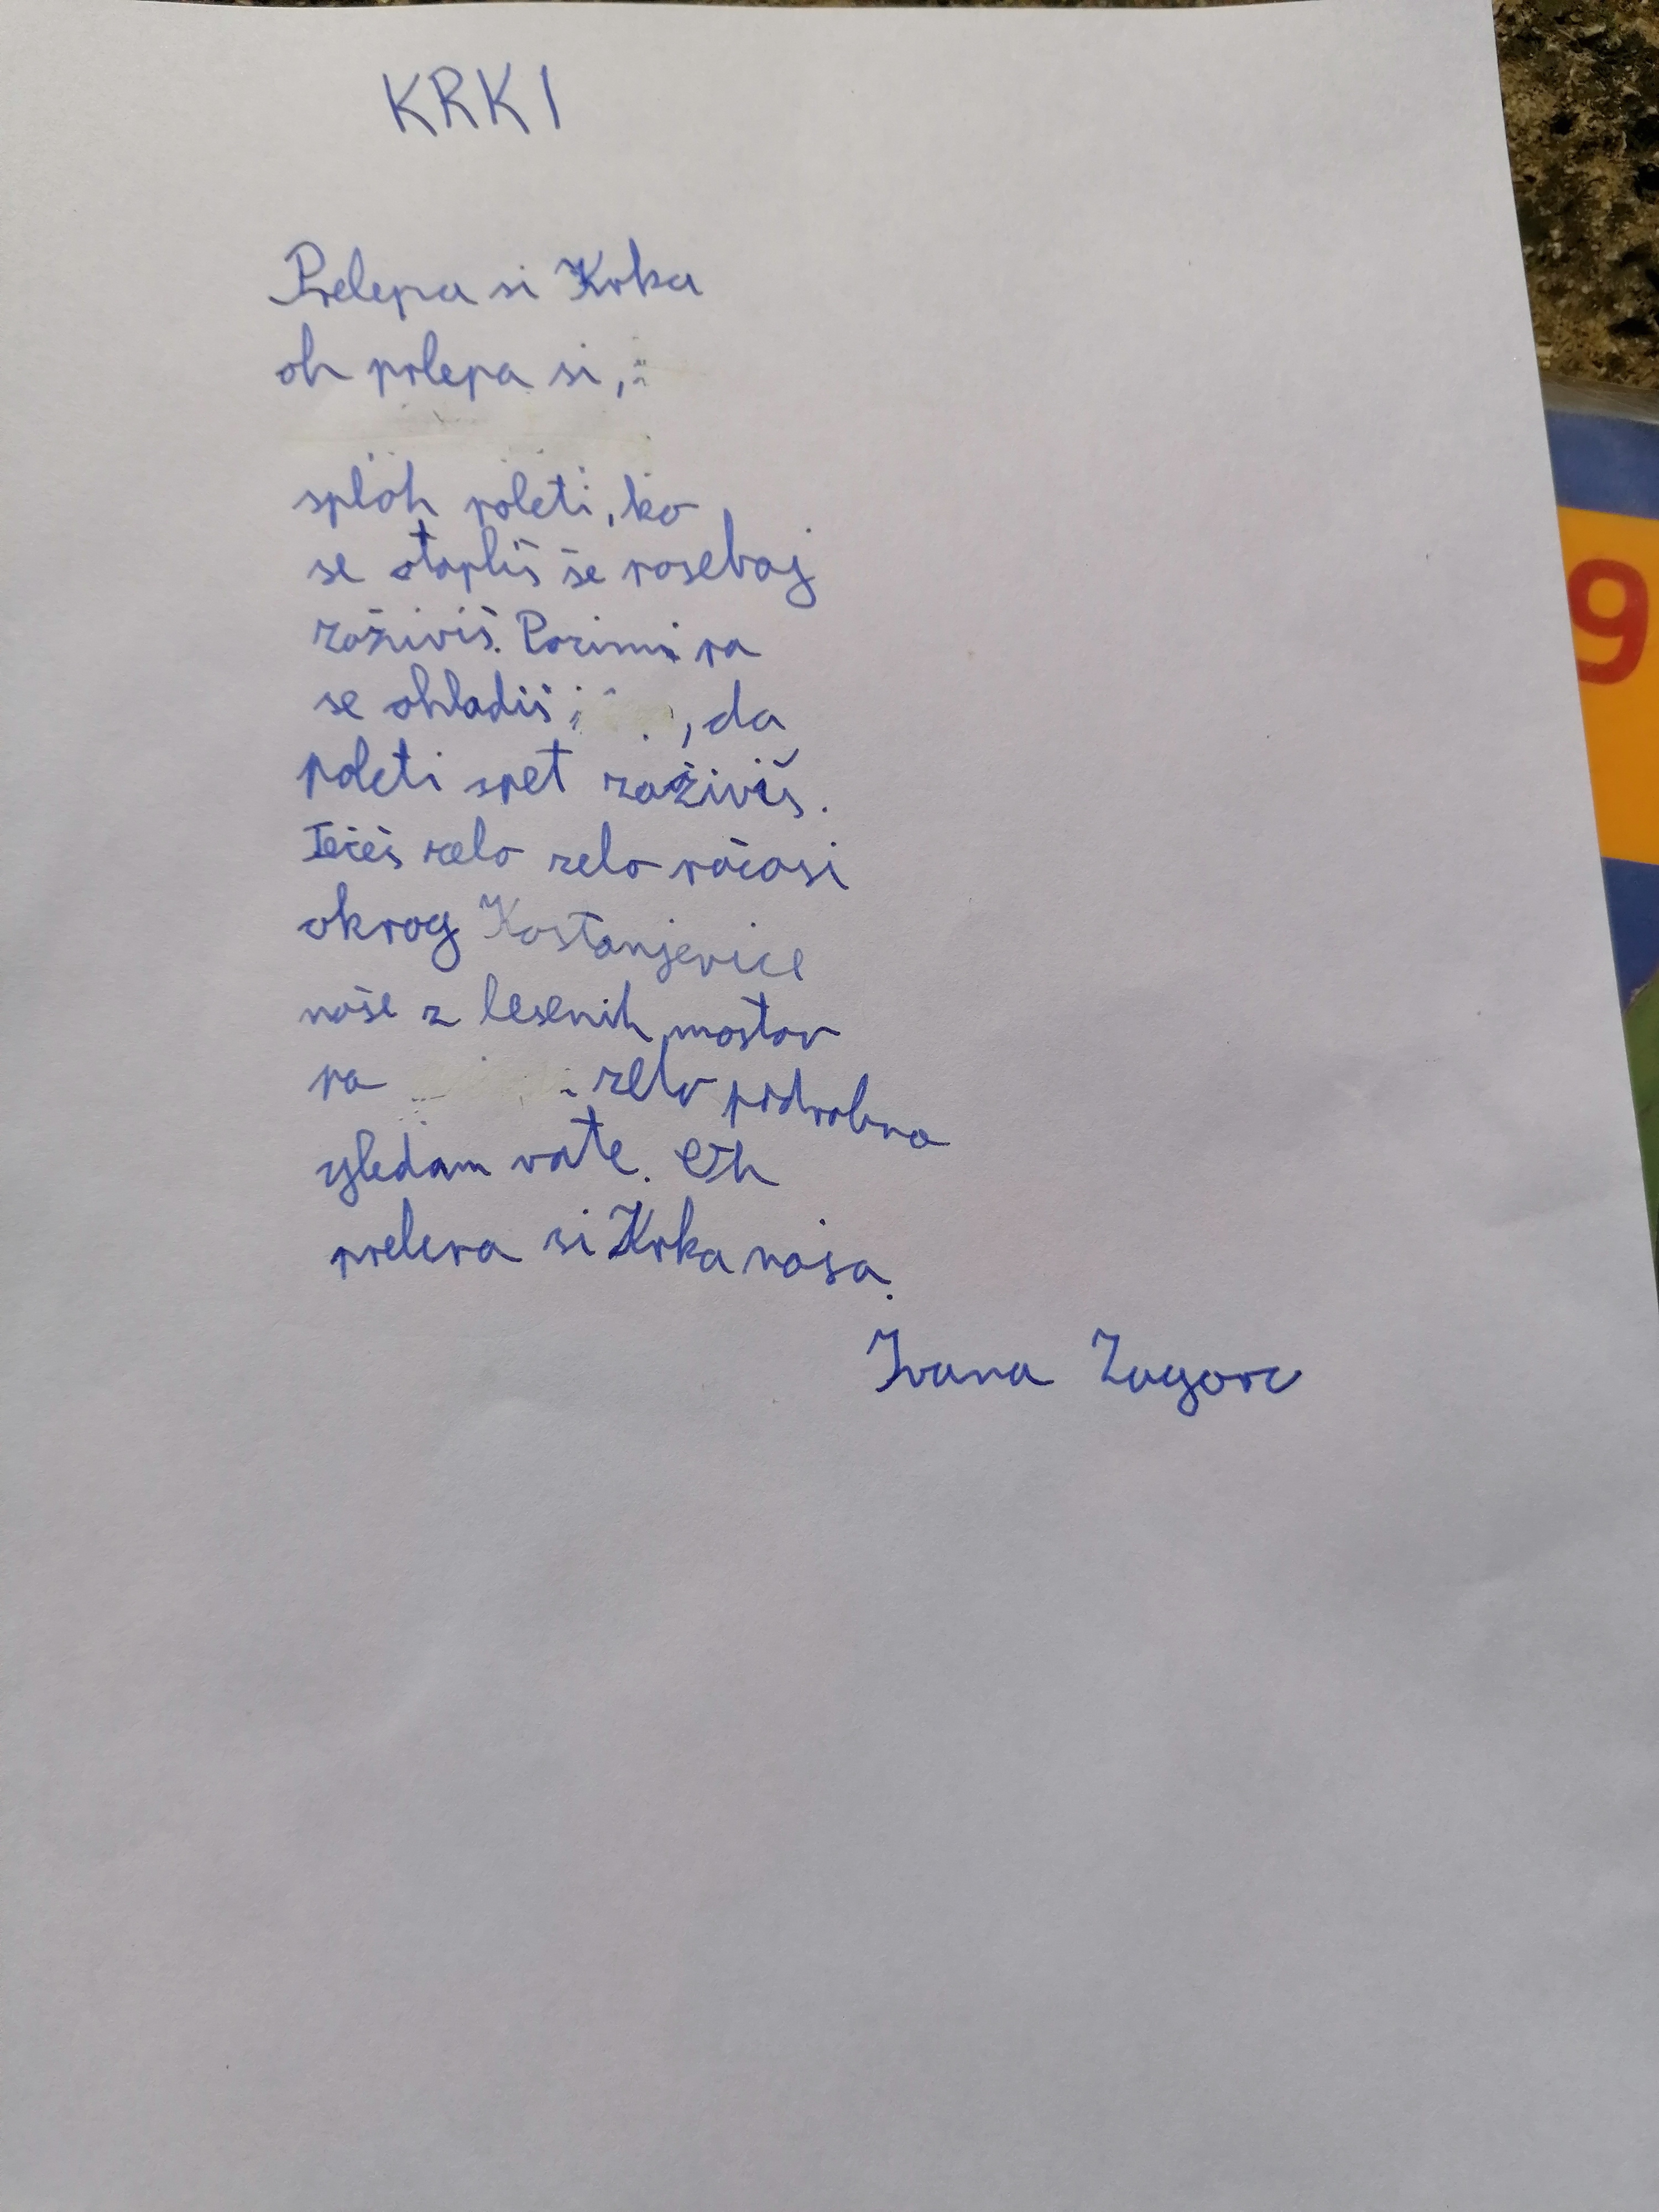 KRKI
Prelepa si Krka
oh prlepa si,
sploh poleti, ko
se otopliš še posebaj
zaživiš. Pozimi pa
se ohladiš, da
poleti spet zaživiš.
Tečeš zelo zelo počasi
okrog Kostanjevice
naše z lesenih mostov
pa zelo podrobno
gledam vate. Oh
prelepa si Krka naša.
Ivana Zagorc
9